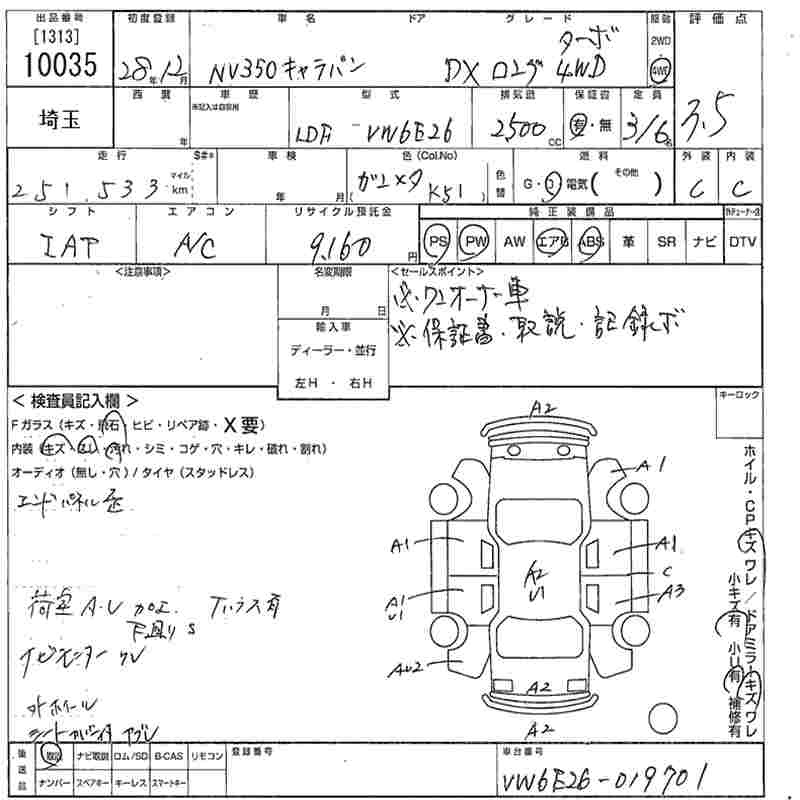 出品番号
[1313]
10035
埼玉
初度登録
28年12月
車名 ドア グレード
NV350キャラバン DX ロング ターボ 4WD
駆動
2WD
4WD
評価点
3.5
西暦
年
車歴
未記入は自家用
型式
LDF-VW6E26
排気量
2500 CC
保証書
有・無
定員
3/6名
走行
251,533 マイル km
S#*
車検
年 月
色(Col.No)
ガンメタ K51
色替
燃料
G・D 電気( その他 )
外装 内装
C C
シフト
IAT
エアコン
A/C
リサイクル預託金
9,160円
純正装備品
PS PW AW エアB ABS 革 SR ナビ
DTV
<注意事項>
名変期限
月 日
輸入車
ディーラー・並行
左H・右H
<セールスポイント>
※ワンオーナー車
※保証書・取説・記録ボ
<検査員記入欄>
Fガラス(キズ・飛石・ヒビ・リペア跡・X要)
内装(キズ・スレ・汚れ・シミ・コゲ・穴・キレ・破れ・割れ)
オーディオ(無し・穴)/タイヤ(スタッドレス)
エンドパネル歪
荷室 A・U 加工
下廻りS
キーロック
A2
A1
A1
A1
C
A2
U1
A1
U1
A3
AU2
A2
A2
ホイル・CPキズワレ/ドアミラーキズワレ
小キズ有 小U有 補修有
後送品
取説 ナビ取説 ロム/SD B-CAS リモコン
ナンバー スペアキー キーレス スマートキー
登録番号
車台番号
VW6E26-019701